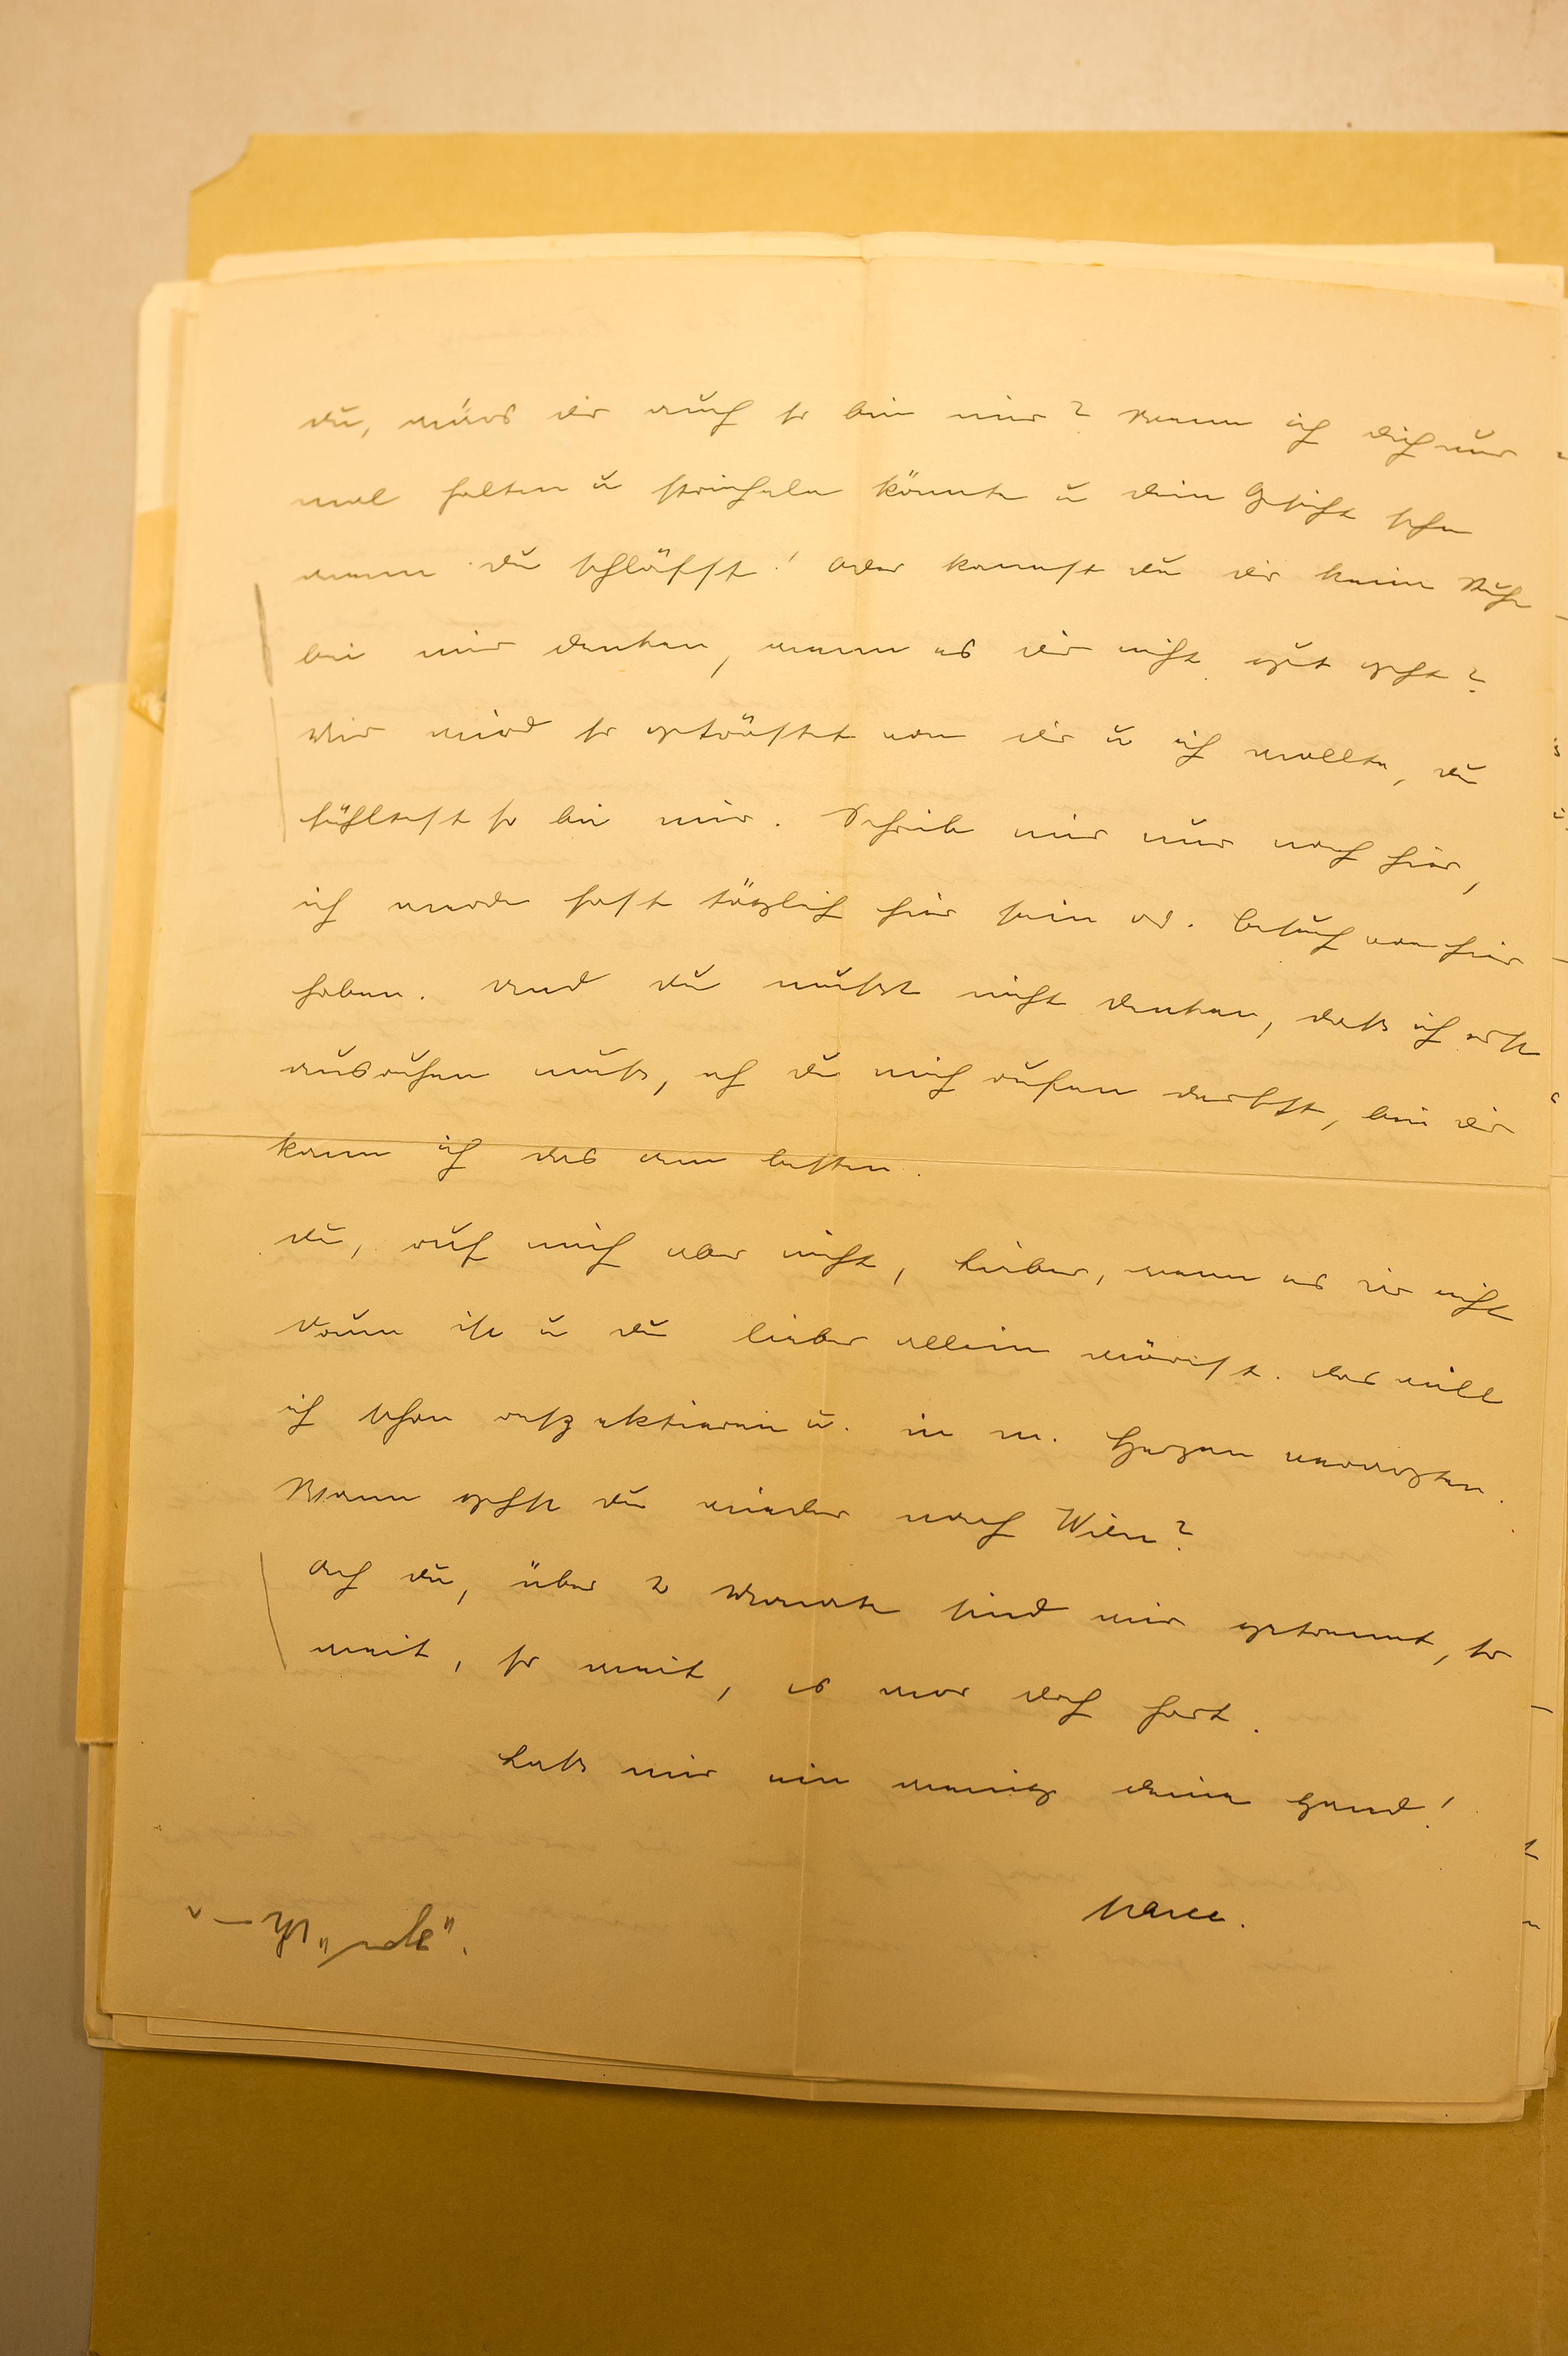 Du, wär's dir auch so bei mir? Wenn ich dich nur
mal halten u streicheln könnte u dein Gesicht sehn
wenn du schläfst! Oder kannst du dir keine Ruhe
bei mir denken, wenn es dir nicht gut geht?
Wir wird so von dir u ich wollte, du
fühltest so bei mir. Schreib mir nur nach hier,
ich werde fast täglich hier sein od. Besuch von hier
haben. Und du mußt nicht denken, daß ich erst
ausruhen muß, eh du mich rufen darfst, bei dir
kann ich das am besten.
Du, ruf mich aber nicht, Lieber, wenn es dir nicht
drum ist u du lieber allein wärest. Das will
ich schon respektieren u. in m. Herzen
Wann gehst du wieder nach Wien?
Ach du, über 2 Monate sind wir getrennt, so
weit, so weit, es war doch hart.
Laß mir ein wenig deine Hand!